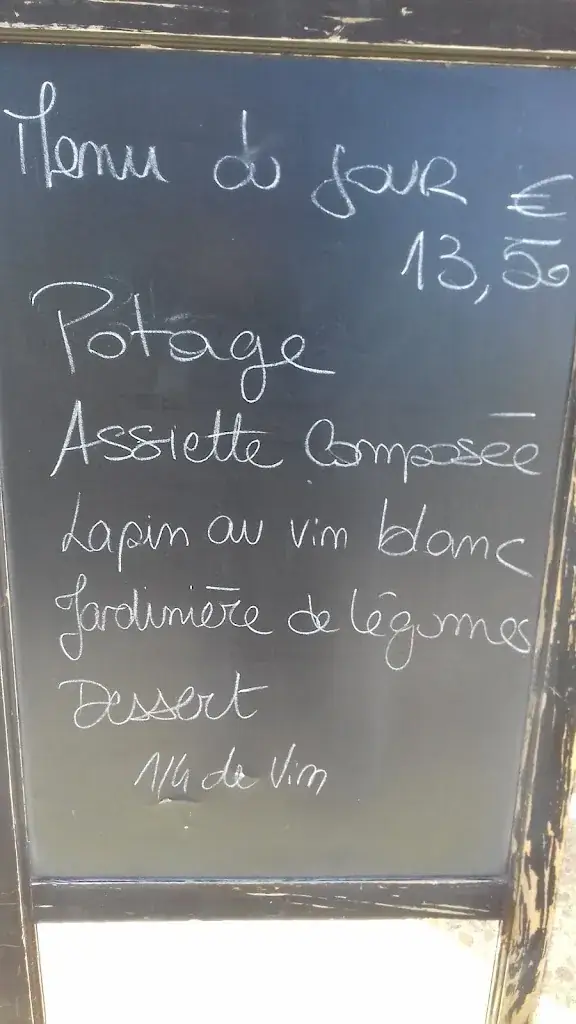 Menu du jour €
13,50
Potage
Assiette Composée
Lapin au vin blanc
Jardinière de légumes
Dessert
1/4 de Vin